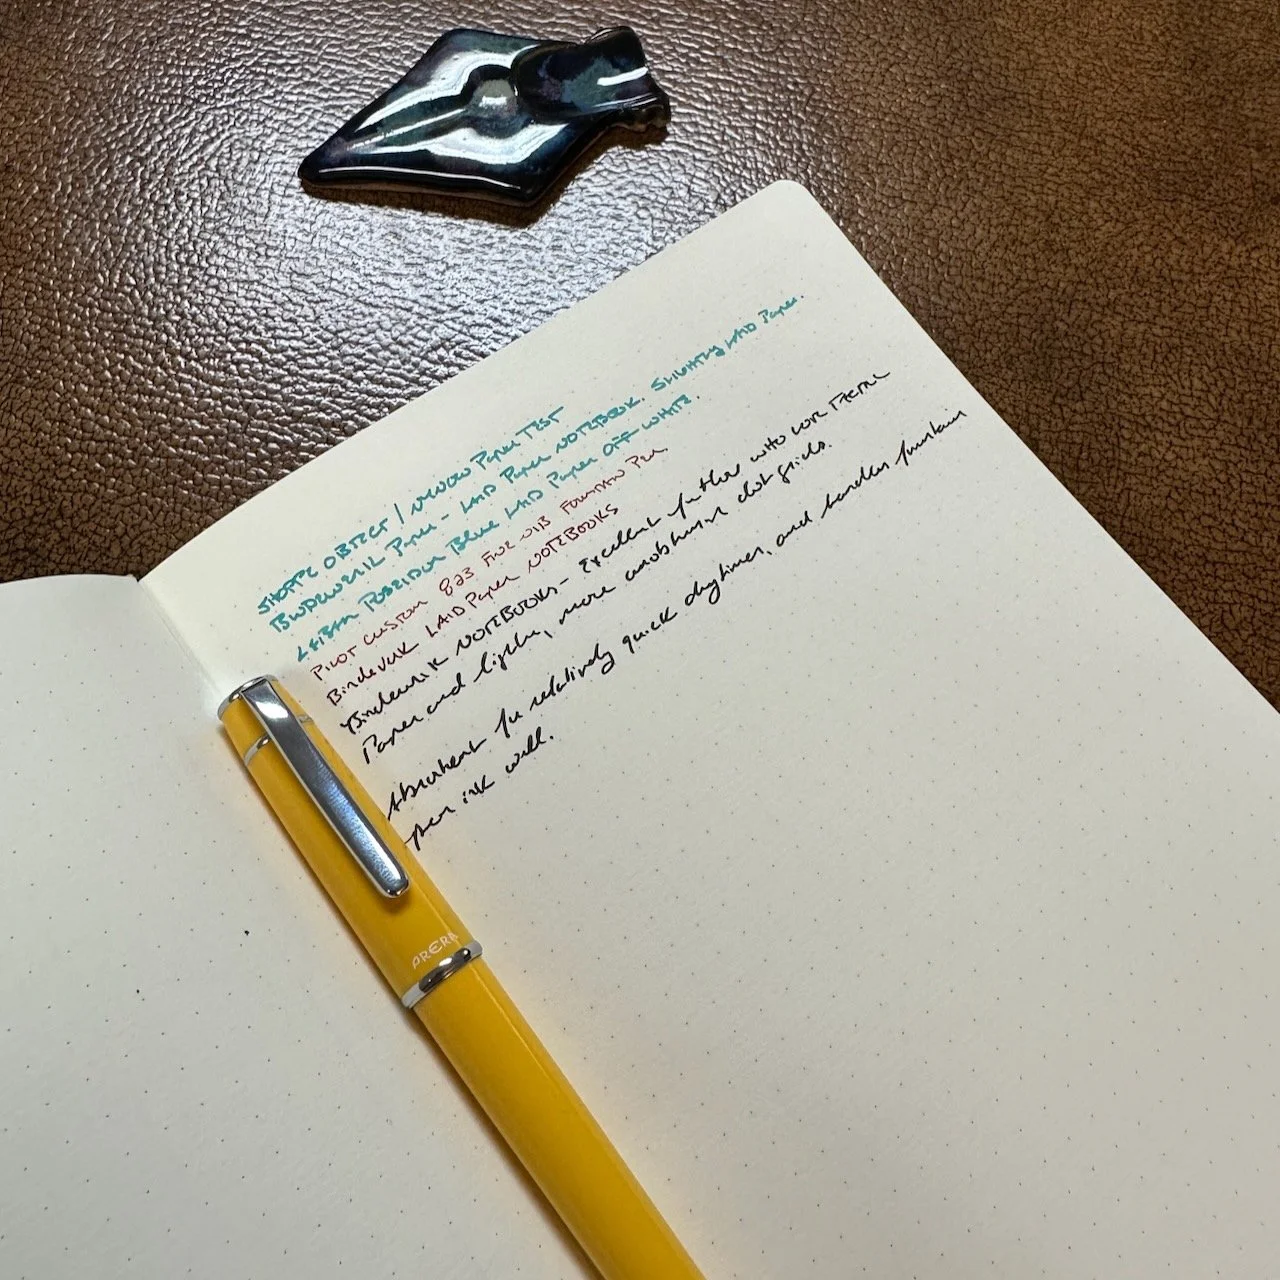 Paper Test
Paper - LAID Paper NOTEBOOK. Slightly LAID Paper.
Poseidon Blue LAID Paper OFF WHITE.
Pilot Custom 823 Fine nib Fountain Pen
Bindewerk LAID Paper NOTEBOOKS
Bindewerk NOTEBOOKS - Excellent for those who
Paper and lighter, more unobtrusive dot grids.
Absorbent for relatively quick drytimes, and handles fountain
pen ink well.
PRERA